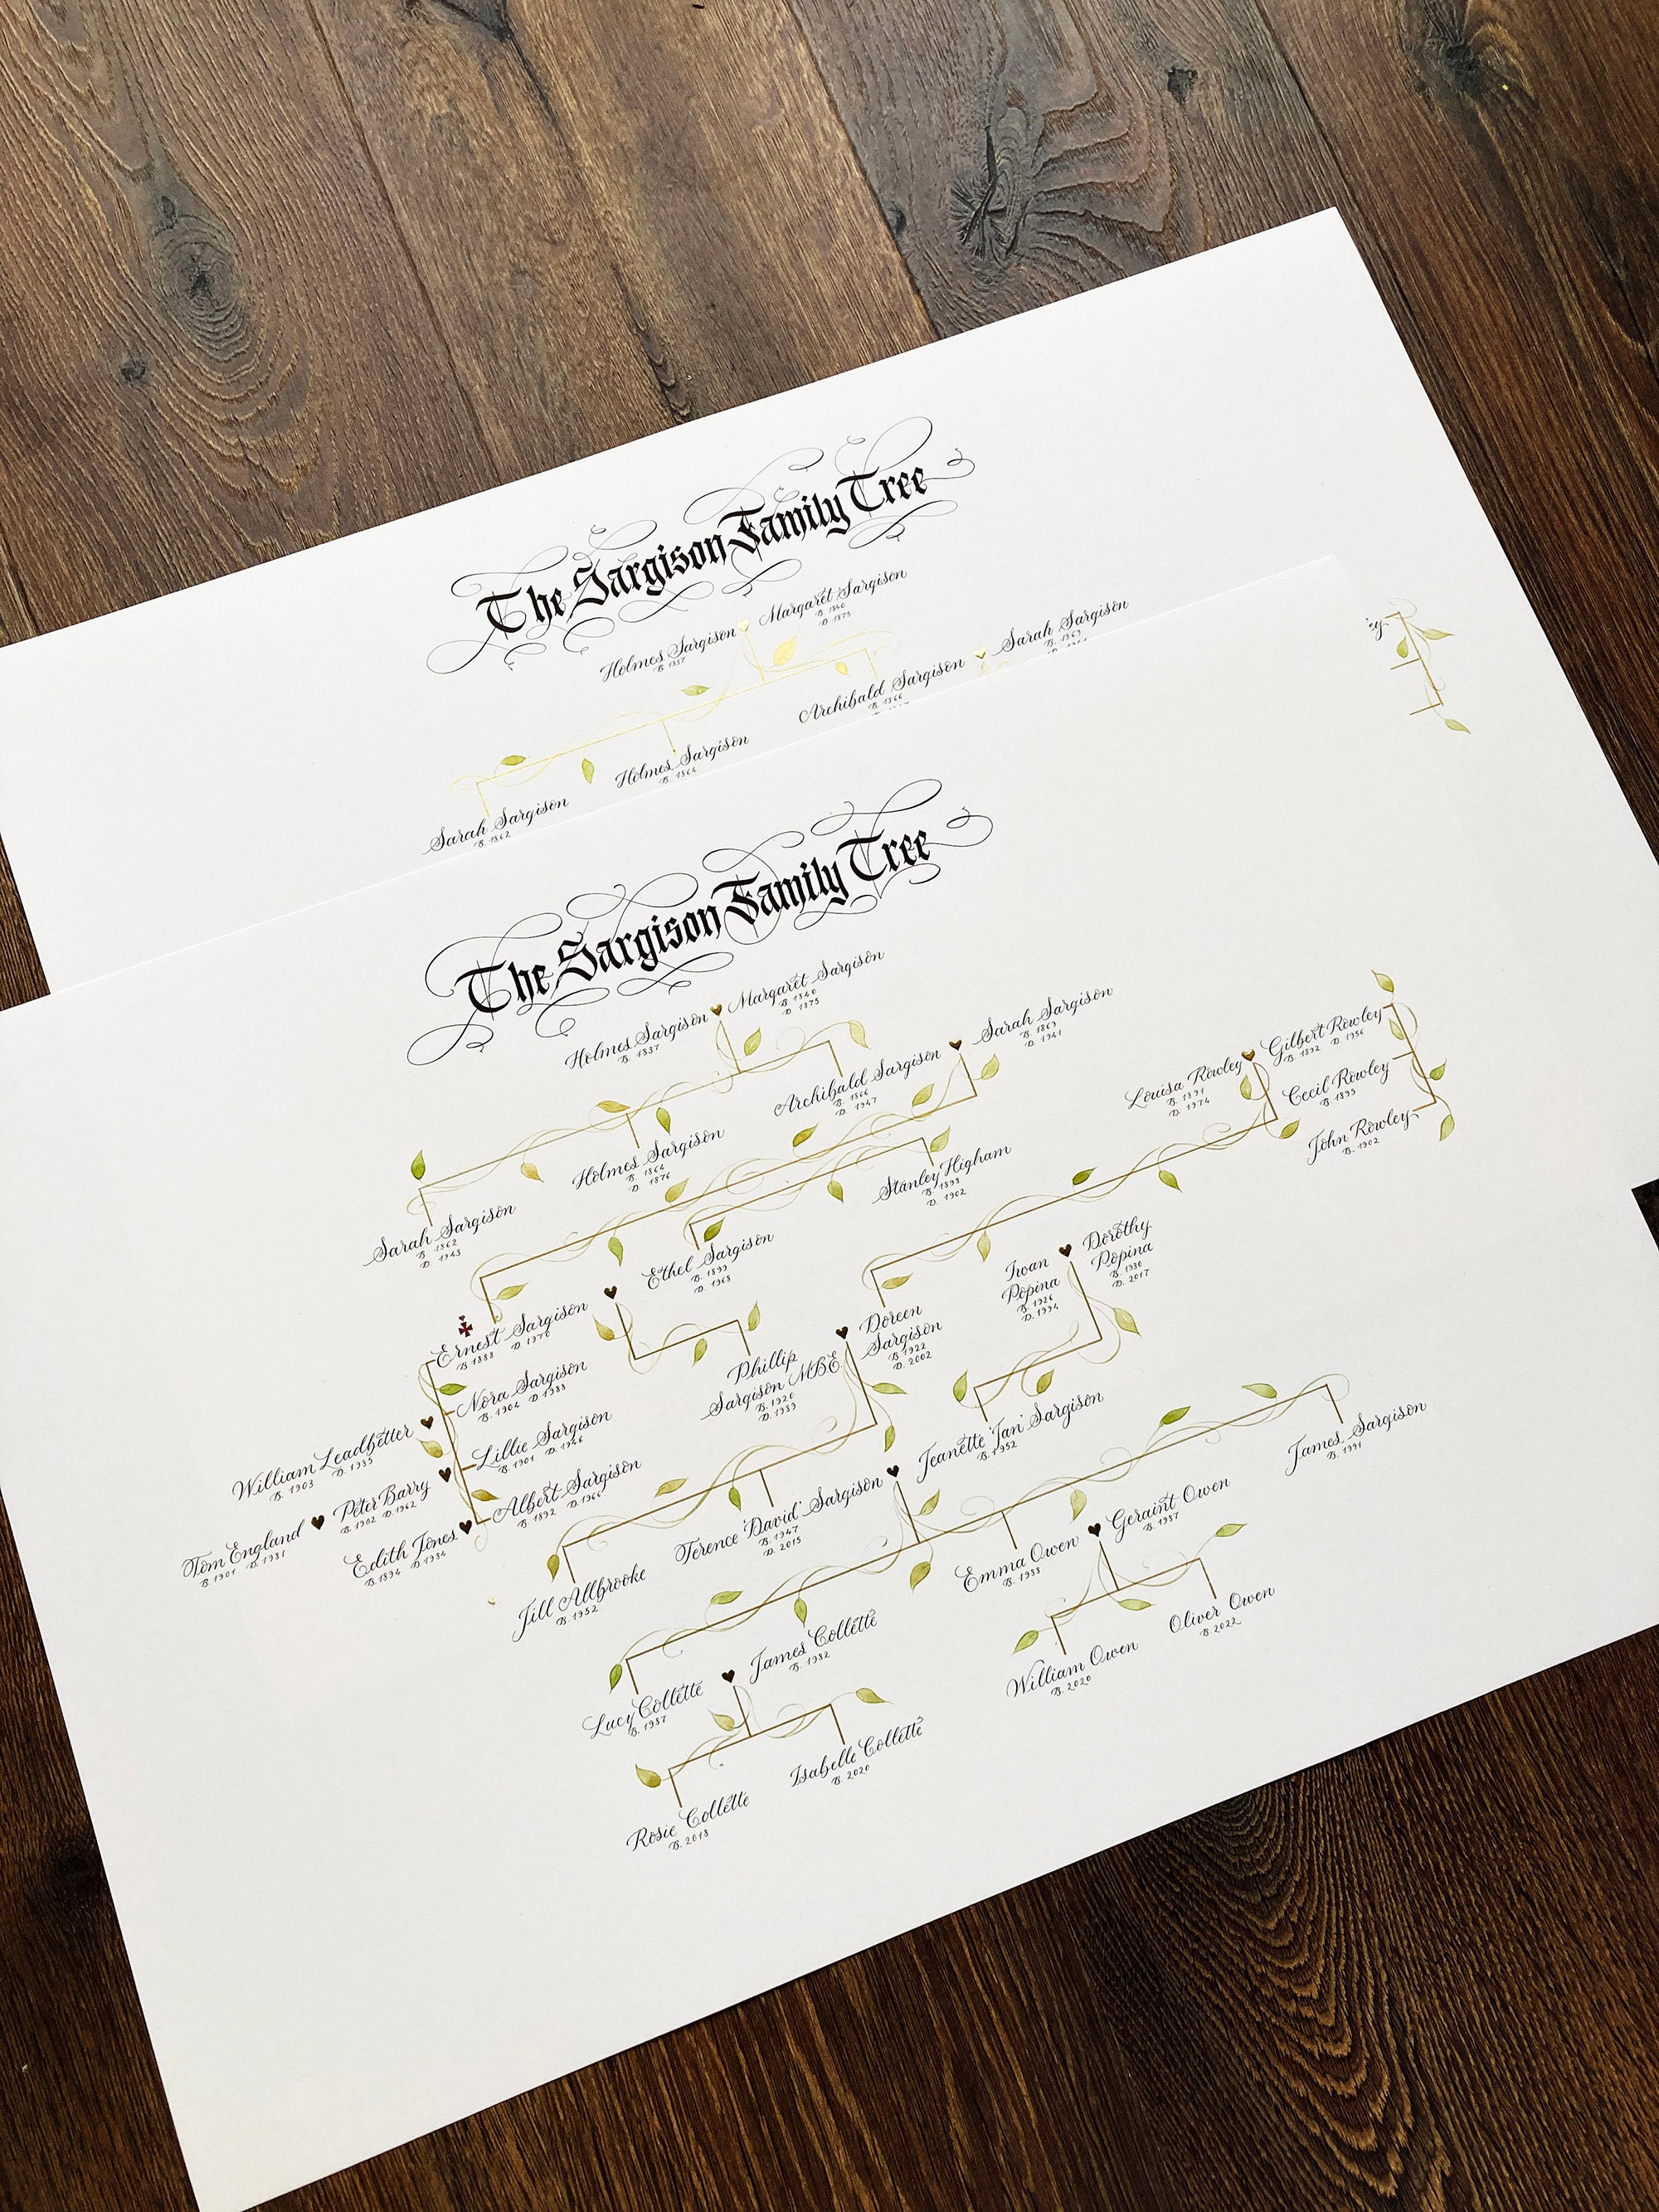 The Sargison Family Tree
Holmes Sargison
B. 1837
Margaret Sargison
B. 1840
D. 1875
Archibald Sargison
B. 1866
Sarah Sargison
B. 1869
Holmes Sargison
B. 1864
Sarah Sargison
B. 1862
ey
The Sargison Family Tree
Holmes Sargison
B. 1837
Margaret Sargison
B. 1840
D. 1875
Archibald Sargison
B. 1866
D. 1947
Sarah Sargison
B. 1869
D. 1941
Holmes Sargison
B. 1864
D. 1876
Sarah Sargison
B. 1862
D. 1943
Louisa Rowley
B. 1891
D. 1974
Gilbert Rowley
B. 1892 D. 1956
Cecil Rowley
B. 1895
John Rowley
B. 1902
Stanley Higham
B. 1898
D. 1902
Ethel Sargison
B. 1899
D. 1968
Ernest Sargison
B. 1888 D. 1970
Nora Sargison
B. 1904 D. 1988
William Leadbetter
B. 1903 D. 1985
Lillie Sargison
B. 1901 D. 1946
Peter Barry
B. 1902 D. 1962
Tom England
B. 1901 D. 1981
Albert Sargison
B. 1892 D. 1966
Edith Jones
B. 1894 D. 1984
Phillip
Sargison MBE
B. 1920
D. 1989
Doreen
Sargison
B. 1922
D. 2002
Ivan
Popina
B. 1926
D. 1994
Dorothy
Popina
B. 1930
D. 2017
Jill Allbrooke
B. 1952
Terence 'David' Sargison
B. 1947
D. 2015
Jeanette 'Jan' Sargison
B. 1952
James Sargison
B. 1991
Emma Owen
B. 1988
Geraint Owen
B. 1987
Lucy Collette
B. 1987
James Collette
B. 1982
William Owen
B. 2020
Oliver Owen
B. 2022
Rosie Collette
B. 2018
Isabelle Collette
B. 2020